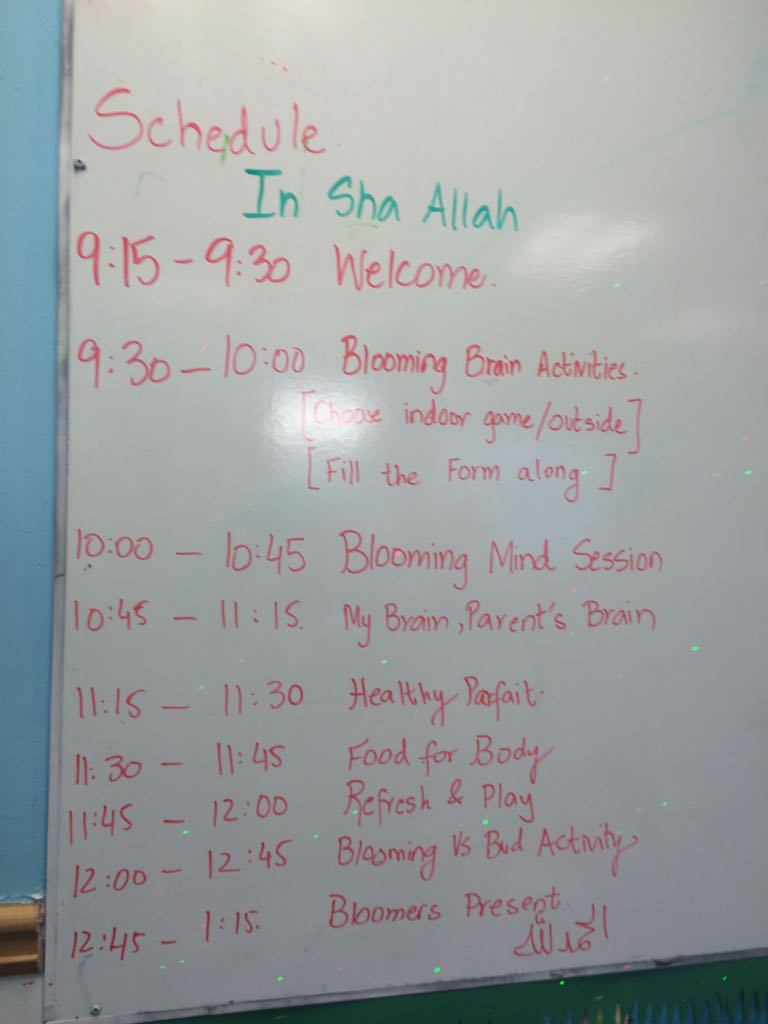 Schedule.
In Sha Allah
9:15 - 9:30 Welcome.
9:30 - 10:00 Blooming Brain Activities.
[Choose indoor game/outside]
[Fill the Form along.]
10:00 - 10:45 Blooming Mind Session
10:45 - 11:15. My Brain, Parent's Brain
11:15 - 11:30 Healthy Parfait.
11:30 - 11:45 Food for Body
11:45 - 12:00 Refresh & Play
12:00 - 12:45 Blooming Vs Bud Activity
12:45 - 1:15. Bloomers Present.
الحمدلله